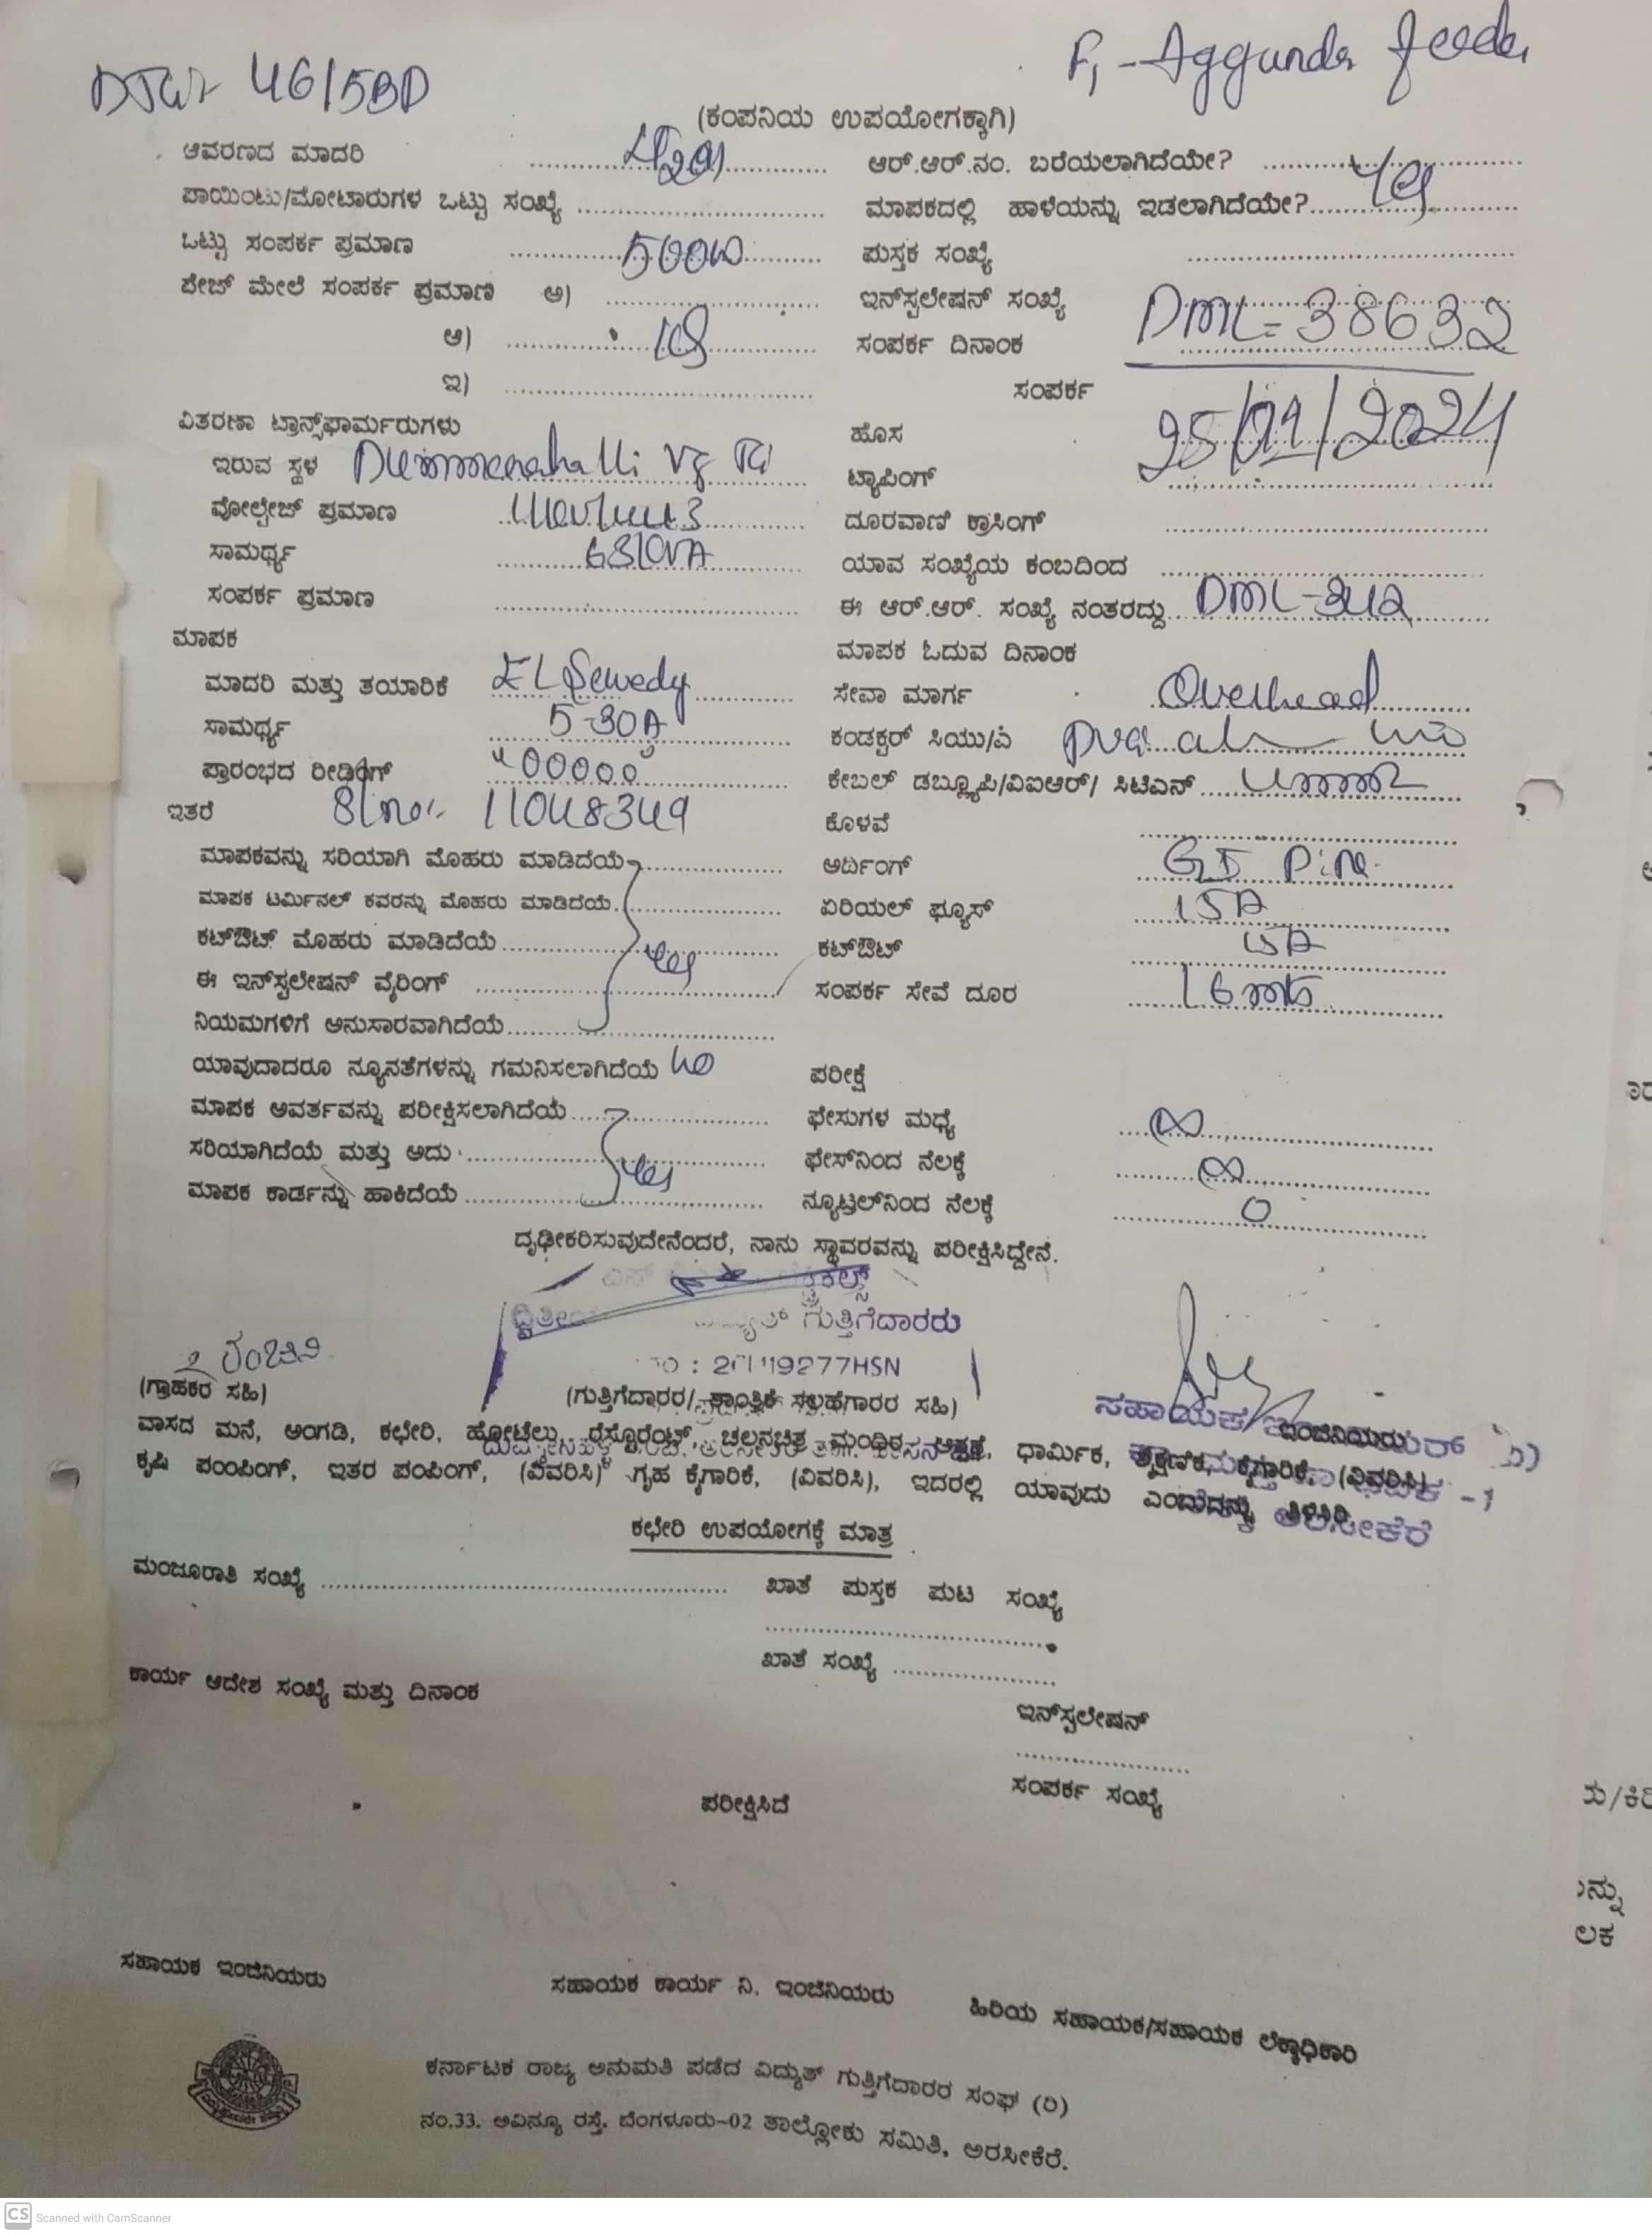 46/5BD
F1 - Aggunda feeder
(ಕಂಪನಿಯ ಉಪಯೋಗಕ್ಕಾಗಿ)
ಆವರಣದ ಮಾದರಿ ..........
ಪಾಯಿಂಟು/ಮೋಟಾರುಗಳ ಒಟ್ಟು ಸಂಖ್ಯೆ ..........
ಒಟ್ಟು ಸಂಪರ್ಕ ಪ್ರಮಾಣ .......... 500W
ಪೇಜ್ ಮೇಲೆ ಸಂಪರ್ಕ ಪ್ರಮಾಣ ಅ) ..........
ಆ) ..........
ಇ) ..........
ವಿತರಣಾ ಟ್ರಾನ್ಸ್‌ಫಾರ್ಮರುಗಳು
ಇರುವ ಸ್ಥಳ Dummenahalli
ವೋಲ್ಟೇಜ್ ಪ್ರಮಾಣ ..........
ಸಾಮರ್ಥ್ಯ .......... 63KVA
ಸಂಪರ್ಕ ಪ್ರಮಾಣ ..........
ಮಾಪಕ
ಮಾದರಿ ಮತ್ತು ತಯಾರಿಕೆ EL Sewedy
ಸಾಮರ್ಥ್ಯ .......... 5-30A
ಪ್ರಾರಂಭದ ರೀಡಿಂಗ್ 00000
ಇತರೆ Sl no:- 11048349
ಮಾಪಕವನ್ನು ಸರಿಯಾಗಿ ಮೊಹರು ಮಾಡಿದೆಯೆ ..........
ಮಾಪಕ ಟರ್ಮಿನಲ್ ಕವರನ್ನು ಮೊಹರು ಮಾಡಿದೆಯೆ ..........
ಕಟ್‌ಔಟ್ ಮೊಹರು ಮಾಡಿದೆಯೆ .......... yes
ಈ ಇನ್‌ಸ್ಟಲೇಷನ್ ವೈರಿಂಗ್ ..........
ನಿಯಮಗಳಿಗೆ ಅನುಸಾರವಾಗಿದೆಯೆ ..........
ಯಾವುದಾದರೂ ನ್ಯೂನತೆಗಳನ್ನು ಗಮನಿಸಲಾಗಿದೆಯೆ no
ಮಾಪಕ ಆವರ್ತವನ್ನು ಪರೀಕ್ಷಿಸಲಾಗಿದೆಯೆ ..........
ಸರಿಯಾಗಿದೆಯೆ ಮತ್ತು ಅದು .......... yes
ಮಾಪಕ ಕಾರ್ಡನ್ನು ಹಾಕಿದೆಯೆ ..........
ಆರ್.ಆರ್.ನಂ. ಬರೆಯಲಾಗಿದೆಯೇ? ..........
ಮಾಪಕದಲ್ಲಿ ಹಾಳೆಯನ್ನು ಇಡಲಾಗಿದೆಯೇ? .......... yes
ಪುಸ್ತಕ ಸಂಖ್ಯೆ ..........
ಇನ್‌ಸ್ಟಲೇಷನ್ ಸಂಖ್ಯೆ DML-38632
ಸಂಪರ್ಕ ದಿನಾಂಕ ..........
ಸಂಪರ್ಕ
ಹೊಸ 25/01/2024
ಟ್ಯಾಪಿಂಗ್ ..........
ದೂರವಾಣಿ ಕ್ರಾಸಿಂಗ್ ..........
ಯಾವ ಸಂಖ್ಯೆಯ ಕಂಬದಿಂದ ..........
ಈ ಆರ್.ಆರ್. ಸಂಖ್ಯೆ ನಂತರದ್ದು DML-342
ಮಾಪಕ ಓದುವ ದಿನಾಂಕ
ಸೇವಾ ಮಾರ್ಗ Overhead
ಕಂಡಕ್ಟರ್ ಸಿಯು/ಎ
ಕೇಬಲ್ ಡಬ್ಲ್ಯೂಪಿ/ವಿಐಆರ್/ ಸಿಟಿಎಸ್ ..........
ಕೊಳವೆ ..........
ಅರ್ಥಿಂಗ್ GI Pipe
ಏರಿಯಲ್ ಫ್ಯೂಸ್ 15A
ಕಟ್‌ಔಟ್ 15A
ಸಂಪರ್ಕ ಸೇವೆ ದೂರ 16 mts
ಪರೀಕ್ಷೆ
ಫೇಸುಗಳ ಮಧ್ಯೆ ∞
ಫೇಸ್‌ನಿಂದ ನೆಲಕ್ಕೆ ∞
ನ್ಯೂಟ್ರಲ್‌ನಿಂದ ನೆಲಕ್ಕೆ 0
ದೃಢೀಕರಿಸುವುದೇನೆಂದರೆ, ನಾನು ಸ್ಥಾವರವನ್ನು ಪರೀಕ್ಷಿಸಿದ್ದೇನೆ.
ಗುತ್ತಿಗೆದಾರರು
19277HSN
(ಗ್ರಾಹಕರ ಸಹಿ)
(ಗುತ್ತಿಗೆದಾರರ/ತಾಂತ್ರಿಕ ಸಲಹೆಗಾರರ ಸಹಿ)
ಸಹಾಯಕ ಇಂಜಿನಿಯರು
ವಾಸದ ಮನೆ, ಅಂಗಡಿ, ಕಛೇರಿ, ಹೋಟೆಲು, ರೆಸ್ಟೊರೆಂಟ್, ಚಲನಚಿತ್ರ ಮಂದಿರ, ಆಸ್ಪತ್ರೆ, ಧಾರ್ಮಿಕ, ಶೈಕ್ಷಣಿಕ, ಕೈಗಾರಿಕೆ, (ವಿವರಿಸಿ)
ಕೃಷಿ ಪಂಪಿಂಗ್, ಇತರ ಪಂಪಿಂಗ್, (ವಿವರಿಸಿ) ಗೃಹ ಕೈಗಾರಿಕೆ, (ವಿವರಿಸಿ), ಇದರಲ್ಲಿ ಯಾವುದು ಎಂಬುದನ್ನು ತಿಳಿಸಿರಿ
ಅರಸೀಕೆರೆ
ಕಛೇರಿ ಉಪಯೋಗಕ್ಕೆ ಮಾತ್ರ
ಮಂಜೂರಾತಿ ಸಂಖ್ಯೆ .......... ಖಾತೆ ಪುಸ್ತಕ ಪುಟ ಸಂಖ್ಯೆ
ಖಾತೆ ಸಂಖ್ಯೆ ..........
ಕಾರ್ಯ ಆದೇಶ ಸಂಖ್ಯೆ ಮತ್ತು ದಿನಾಂಕ
ಇನ್‌ಸ್ಟಲೇಷನ್
ಸಂಪರ್ಕ ಸಂಖ್ಯೆ
ಪರೀಕ್ಷಿಸಿದೆ
ಸಹಾಯಕ ಇಂಜಿನಿಯರು
ಸಹಾಯಕ ಕಾರ್ಯ ನಿ. ಇಂಜಿನಿಯರು
ಹಿರಿಯ ಸಹಾಯಕ/ಸಹಾಯಕ ಲೆಕ್ಕಾಧಿಕಾರಿ
ಕರ್ನಾಟಕ ರಾಜ್ಯ ಅನುಮತಿ ಪಡೆದ ವಿದ್ಯುತ್ ಗುತ್ತಿಗೆದಾರರ ಸಂಘ (ರಿ)
ನಂ.33, ಅವಿನ್ಯೂ ರಸ್ತೆ, ಬೆಂಗಳೂರು-02 ತಾಲ್ಲೋಕು ಸಮಿತಿ, ಅರಸೀಕೆರೆ.
CS Scanned with CamScanner